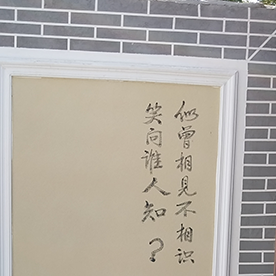 似曾相见不相识
笑问谁人知？